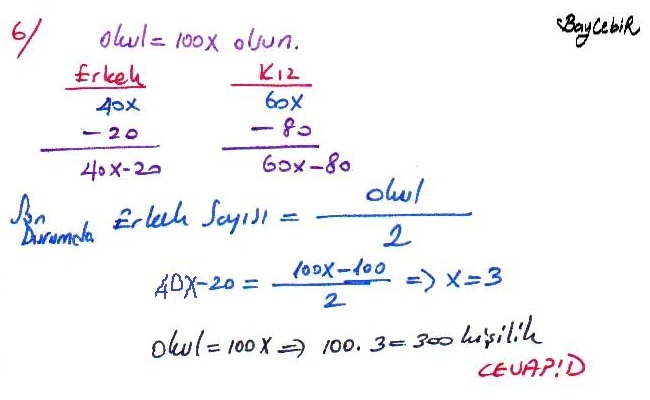 6/ Okul = 100x olsun. BAyCebiR
Erkek Kız
40x 60x
- 20 - 80
40x-20 60x-80
Son Durumda Erkek Sayısı = okul / 2
40x-20 = 100x-100 / 2 => x=3
Okul = 100x => 100.3 = 300 kişilik
CEVAP:D